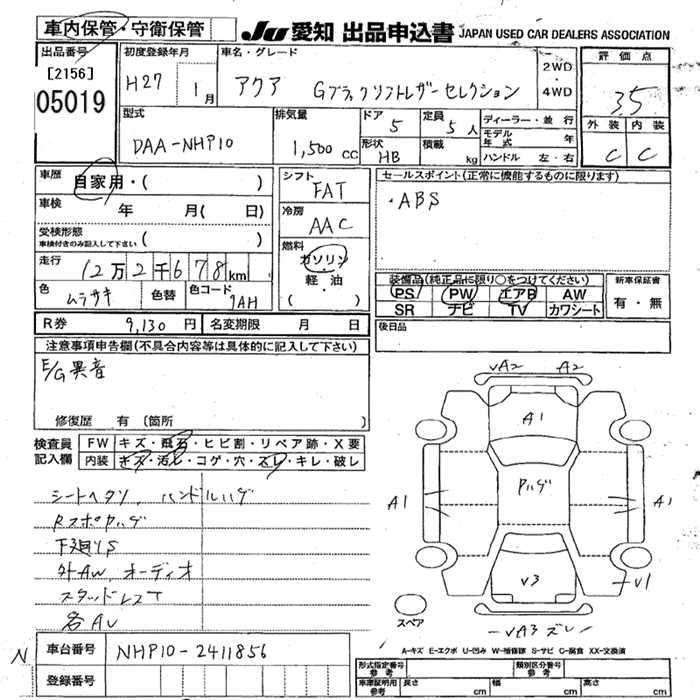 車内保管・守衛保管
JU 愛知 出品申込書 JAPAN USED CAR DEALERS ASSOCIATION
出品番号
[2156]
05019
初度登録年月
H27 1月
車名・グレード
アクア Gブラックソフトレザーセレクション
2WD
・
4WD
評価点
3.5
外装 内装
C C
型式
DAA-NHP10
排気量
1,500 CC
ドア
5
形状
HB
定員
5人
積載
kg
ディーラー・並行
モデル年式 年
ハンドル 左・右
車歴
自家用・( )
車検 年 月( 日)
受検形態
車検付きのみ記入して下さい ( )
走行
12万2千678km
色
ムラサキ
色替
色コード
9AH
シフト
FAT
冷房
AAC
燃料
ガソリン
・
軽油
( )
セールスポイント(正常に機能するものに限ります)
・ABS
装備品(純正品に限り○をつけてください)
PS PW エアB AW
SR ナビ TV カワシート
新車保証書
有・無
後日品
R券 9,130円
名変期限 月 日
注意事項申告欄(不具合内容等は具体的に記入して下さい)
E/G異音
修復歴 有 〔箇所 〕
検査員
記入欄
FW キズ・飛石・ヒビ割・リペア跡・X要
内装 キズ・汚レ・コゲ・穴・スレ・キレ・破レ
シートヘタリ、ハンドルハゲ
Rスポイラハゲ
下廻りS
外AW、オーディオ
スタッドレスT
各AU
vA2 A2
A1
Pハゲ
A1 A1
v3 v1
vA3ズレ
スペア
A-キズ E-エクボ U-凹み W-補修跡 S-サビ C-腐食 XX-交換済
N
車台番号 NHP10-2411856
登録番号
形式指定番号
参考
類別区分番号
参考
車庫証明用
参考
長さ cm 幅 cm 高さ cm